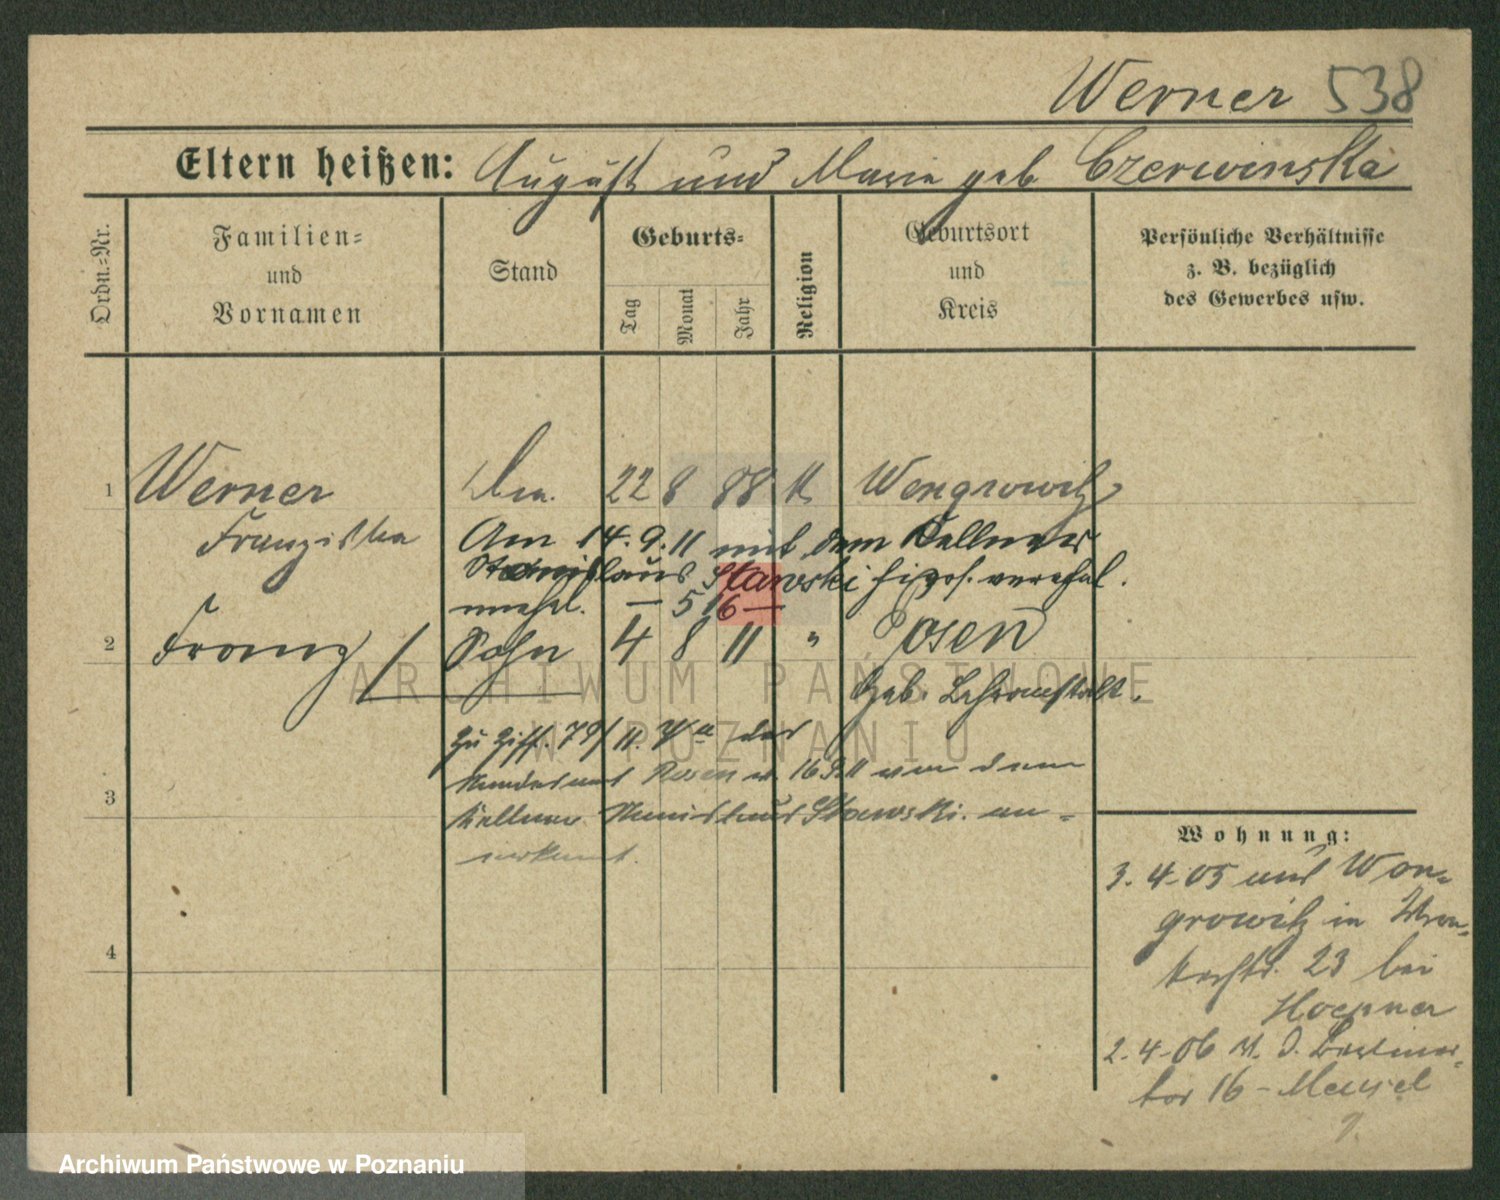 Werner 538
Eltern heißen: August und Marie geb Czerwinska
Ordn.-Nr.
Familien-
und
Vornamen
Stand
Geburts-
Tag
Monat
Jahr
Religion
Geburtsort
und
Kreis
Persönliche Verhältnisse
z. B. bezüglich
des Gewerbes usw.
1 Werner 22 8 88 K Wongrowitz
Franziska Am 14.9.11 mit dem Kellner
Stanislaus Stawski hier verehel.
unehel. — 5 16 —
2 Franz Sohn 4 8 11 " Posen
Geb. Lehranstalt.
Zu Ziff. 79/11
Posen 16 9 11 von dem
3 Kellner Stanislaus Stawski. an-
erkannt.
4
Wohnung:
3. 4-05 aus Won-
growitz in
23 bei
Hoepner
2. 4-06
tor 16 -
ARCHIWUM PAŃSTWOWE
W POZNANIU
Archiwum Państwowe w Poznaniu